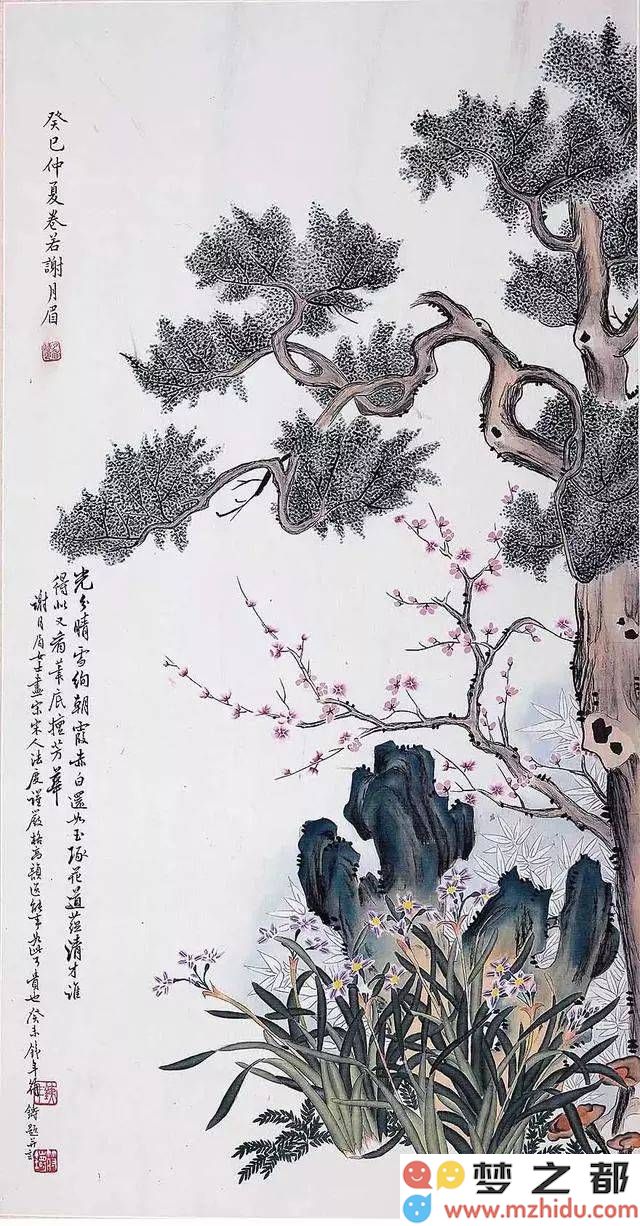 癸巳仲夏卷若謝月眉
光分晴雪绚朝霞赤白還如玉琢花道蕴清才誰
得似又看筆底擅芳華
謝月眉女士畫宗宋人法度謹嚴格高韻逸能事如此可貴也癸未舒年题并記
梦之都
www.mzhidu.com